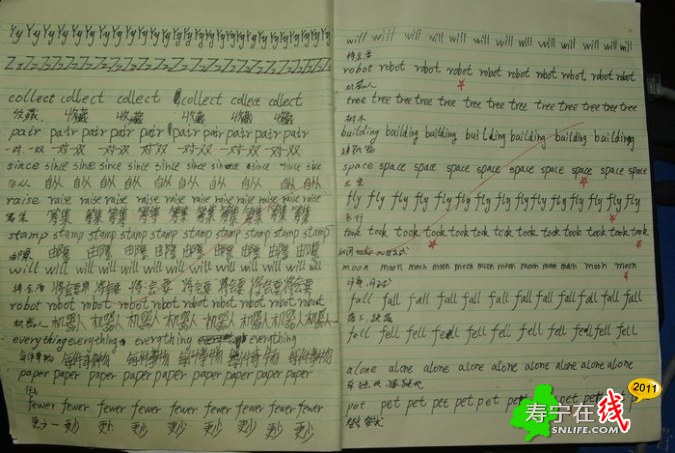 Yy Yy Yy Yy Yy Yy Yy Yy Yy Yy Yy Yy Yy Yy Yy
Zz Zz Zz Zz Zz Zz Zz Zz Zz Zz Zz Zz Zz
collect collect collect collect collect collect
收藏 收藏 收藏 收藏 收藏
pair pair pair pair pair pair pair pair pair pair
一对一双 一对一双 一对一双 一对一双 一对一双
since since since since since since since since
自从 自从 自从 自从 自从 自从 自从
raise raise raise raise raise raise raise raise raise
筹集 筹集 筹集 筹集 筹集 筹集 筹集
stamp stamp stamp stamp stamp stamp stamp stamp
will will will will will will will will will will
将会要 将会要 将会要 将会要 将会要
robot robot robot robot robot robot robot robot
机器人 机器人 机器人 机器人 机器人 机器人 机器人
everything everything everything everything
每件事物 每件事物 每件事物 每件事物
paper paper paper paper paper paper paper paper
纸
fewer fewer fewer fewer fewer fewer fewer fewer
更少 更少 更少 更少 更少 更少 更少
will will will will will will will will will will will
将会要
robot robot robot robot robot robot robot robot robot
机器人
tree tree tree tree tree tree tree tree tree tree
树木
building building building building building building building
建筑物
space space space space space space space space
太空
fly fly fly fly fly fly fly fly fly fly fly fly
飞行
took took took took took took took took took took took
moon moon moon moon moon moon moon moon moon moon
fall fall fall fall fall fall fall fall fall fall
fell fell fell fell fell fell fell fell fell fell
alone alone alone alone alone alone alone alone
pet pet pet pet pet pet pet pet
2011
寿宁在线
SNLIFE.COM